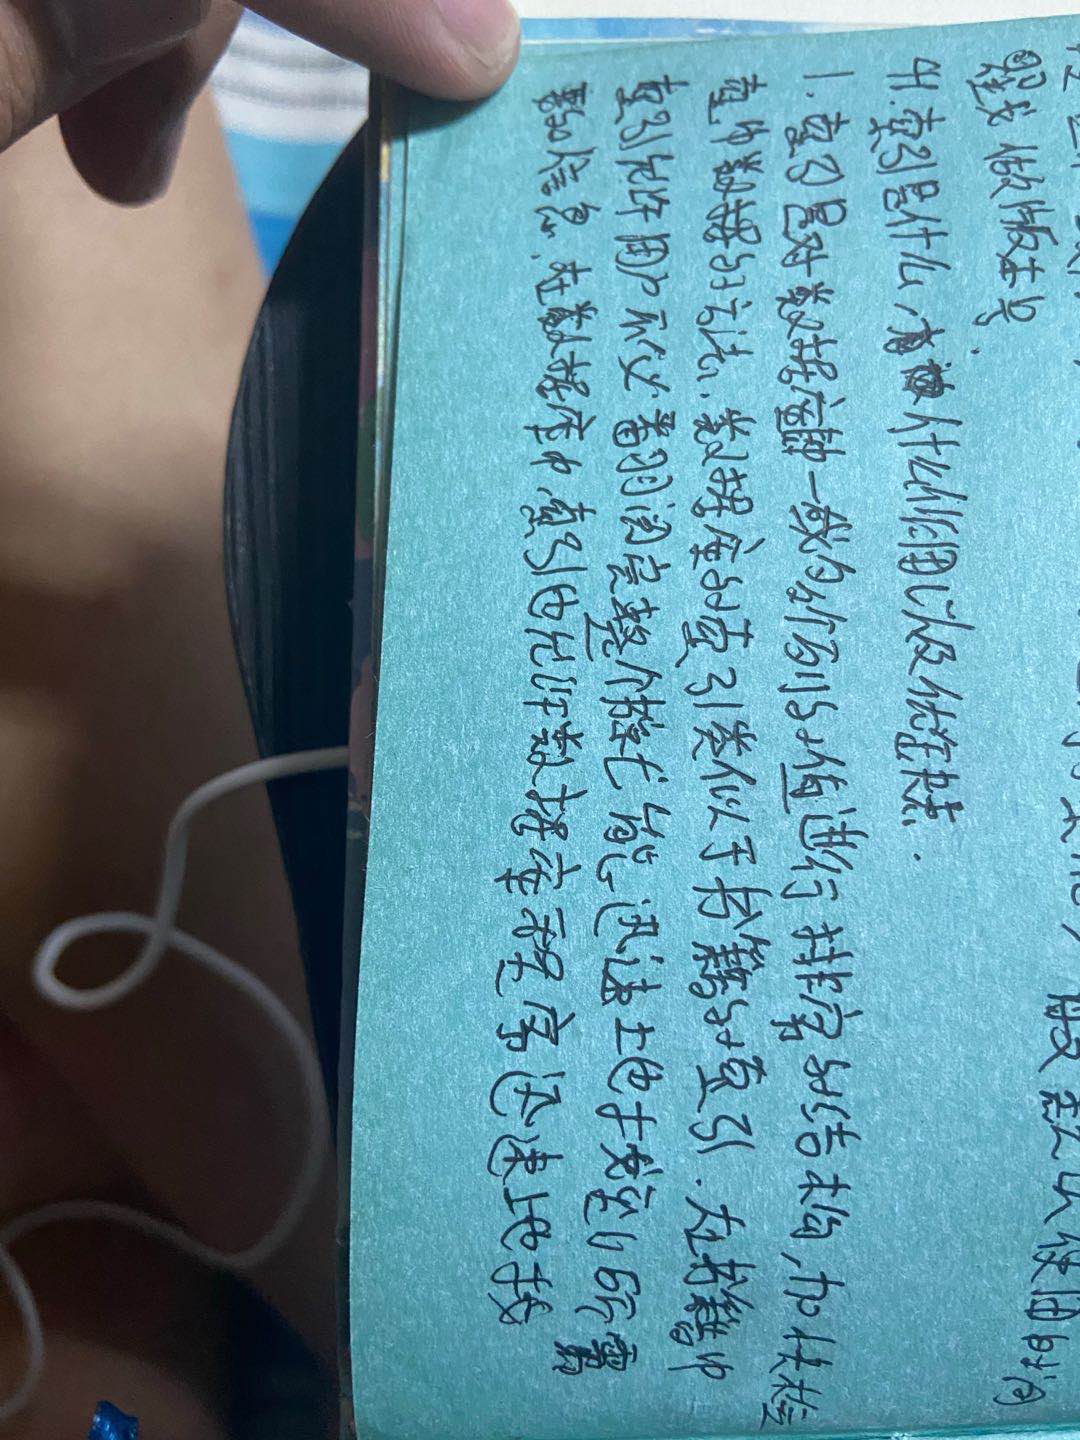 时或 做版本号.
41.索引是什么,有什么作用以及优缺点.
1.索引是对数据库中一或多个列的值进行排序的结构,加快检
查询数据的方法.数据库的索引类似于书籍的索引.在书籍中
索引允许用户不必翻阅完整个书就能迅速地找到所需
要的信息.在数据库中索引也允许数据库程序迅速地找